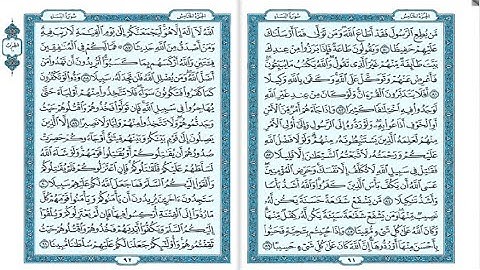 الجزء الخامس سورة النساء
من يطع الرسول فقد أطاع الله ومن تولى فما أرسلناك
عليهم حفيظا ٨٠ ويقولون طاعة فإذا برزوا من عندك
بيت طائفة منهم غير الذي تقول والله يكتب ما يبيتون
فأعرض عنهم وتوكل على الله وكفى بالله وكيلا ٨١
أفلا يتدبرون القرءان ولو كان من عند غير الله
لوجدوا فيه اختلافا كثيرا ٨٢ وإذا جاءهم أمر من الأمن
أو الخوف أذاعوا به ولو ردوه إلى الرسول وإلى أولي الأمر
منهم لعلمه الذين يستنبطونه منهم ولولا فضل الله
عليكم ورحمته لاتبعتم الشيطان إلا قليلا ٨٣
فقاتل في سبيل الله لا تكلف إلا نفسك وحرض المؤمنين
عسى الله أن يكف بأس الذين كفروا والله أشد بأسا
وأشد تنكيلا ٨٤ من يشفع شفاعة حسنة يكن له
نصيب منها ومن يشفع شفاعة سيئة يكن له كفل منها
وكان الله على كل شيء مقيتا ٨٥ وإذا حييتم بتحية فحيوا
بأحسن منها أو ردوها إن الله كان على كل شيء حسيبا ٨٦
٩١
الجزء الخامس سورة النساء
الله لا إله إلا هو ليجمعنكم إلى يوم القيامة لا ريب فيه
ومن أصدق من الله حديثا ٨٧ فما لكم في المنافقين
فئتين والله أركسهم بما كسبوا أتريدون أن تهدوا من
أضل الله ومن يضلل الله فلن تجد له سبيلا ٨٨ ودوا لو تكفرون
كما كفروا فتكونون سواء فلا تتخذوا منهم أولياء حتى
يهاجروا في سبيل الله فإن تولوا فخذوهم واقتلوهم حيث
وجدتموهم ولا تتخذوا منهم وليا ولا نصيرا ٨٩ إلا الذين
يصلون إلى قوم بينكم وبينهم ميثاق أو جاءوكم حصرت
صدورهم أن يقاتلوكم أو يقاتلوا قومهم ولو شاء الله
لسلطهم عليكم فلقاتلوكم فإن اعتزلوكم فلم يقاتلوكم
وألقوا إليكم السلم فما جعل الله لكم عليهم سبيلا ٩٠
ستجدون ءاخرين يريدون أن يأمنوكم ويأمنوا قومهم كل
ما ردوا إلى الفتنة أركسوا فيها فإن لم يعتزلوكم ويلقوا
إليكم السلم ويكفوا أيديهم فخذوهم واقتلوهم حيث
ثقفتموهم وأولئكم جعلنا لكم عليهم سلطانا مبينا ٩١
٩٢